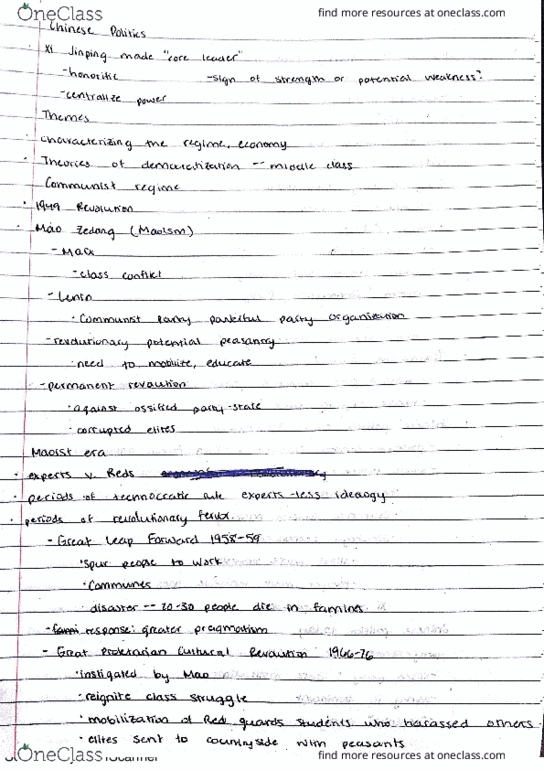 OneClass find more resources at oneclass.com
Chinese Politics
· Xi Jinping made "core leader"
-honorific -sign of strength or potential weakness?
-centralize power
Themes
· characterizing the regime, economy
· Theories of democratization -- middle class
Communist regime
· 1949 Revolution
· Mao Zedong (Maoism)
- Marx
- class conflict
- Lenin
· Communist Party powerful party organization
-revolutionary potential peasantry
· need to mobilize, educate
-permanent revolution
· against ossified party-state
· corrupted elites
Maoist era
· experts v. Reds
· periods of technocratic rule experts -less ideology
· periods of revolutionary fervor
- Great Leap Forward 1958-59
· spur people to work
· Communes
· disaster -- 20-30 people die in famines
- response: greater pragmatism
- Great Proletarian Cultural Revolution 1966-76
· instigated by Mao
· reignite class struggle
· mobilization of Red guards students who harassed others
· elites sent to countryside with peasants
OneClass find more resources at oneclass.com